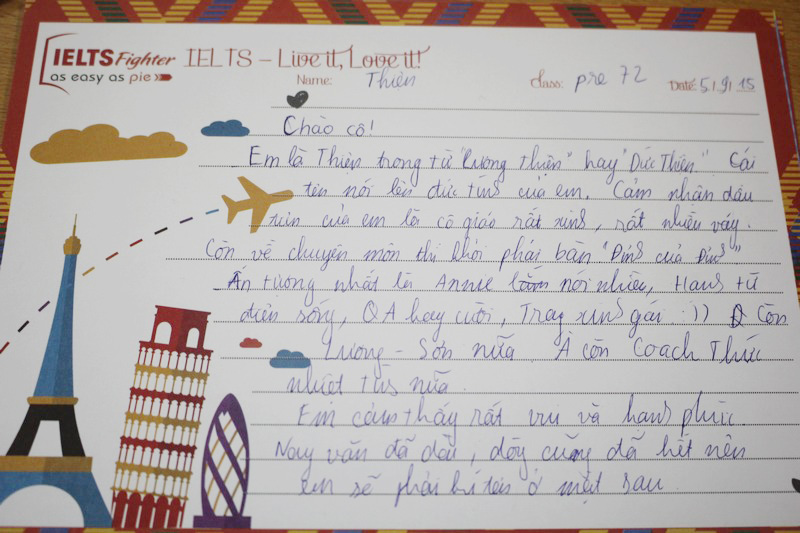 IELTS Fighter
as easy as pie
IELTS – Live it, Love it!
Name: Thiên
Class: pre 72
Date: 5/9/15
Chào cô!
Em là Thiện trong từ "Lương thiện" hay "Đức Thiện". Cái
tên nói lên đức tính của em. Cảm nhận đầu
tiên của em là cô giáo rất xinh, rất nhiều váy.
Còn về chuyên môn thì khỏi phải bàn "Đỉnh của Đỉnh"
Ấn tượng nhất là Annie lắm nói nhiều, Hans từ
điển sống, QA hay cười, Trag xinh gái :)) Còn
Lương - Sơn nữa À còn Coach Thức
nhiệt tình nữa.
Em cảm thấy rất vui và hạnh phúc.
Nay văn đã dài, dòng cũng đã hết nên
em sẽ phải kí tên ở mặt sau